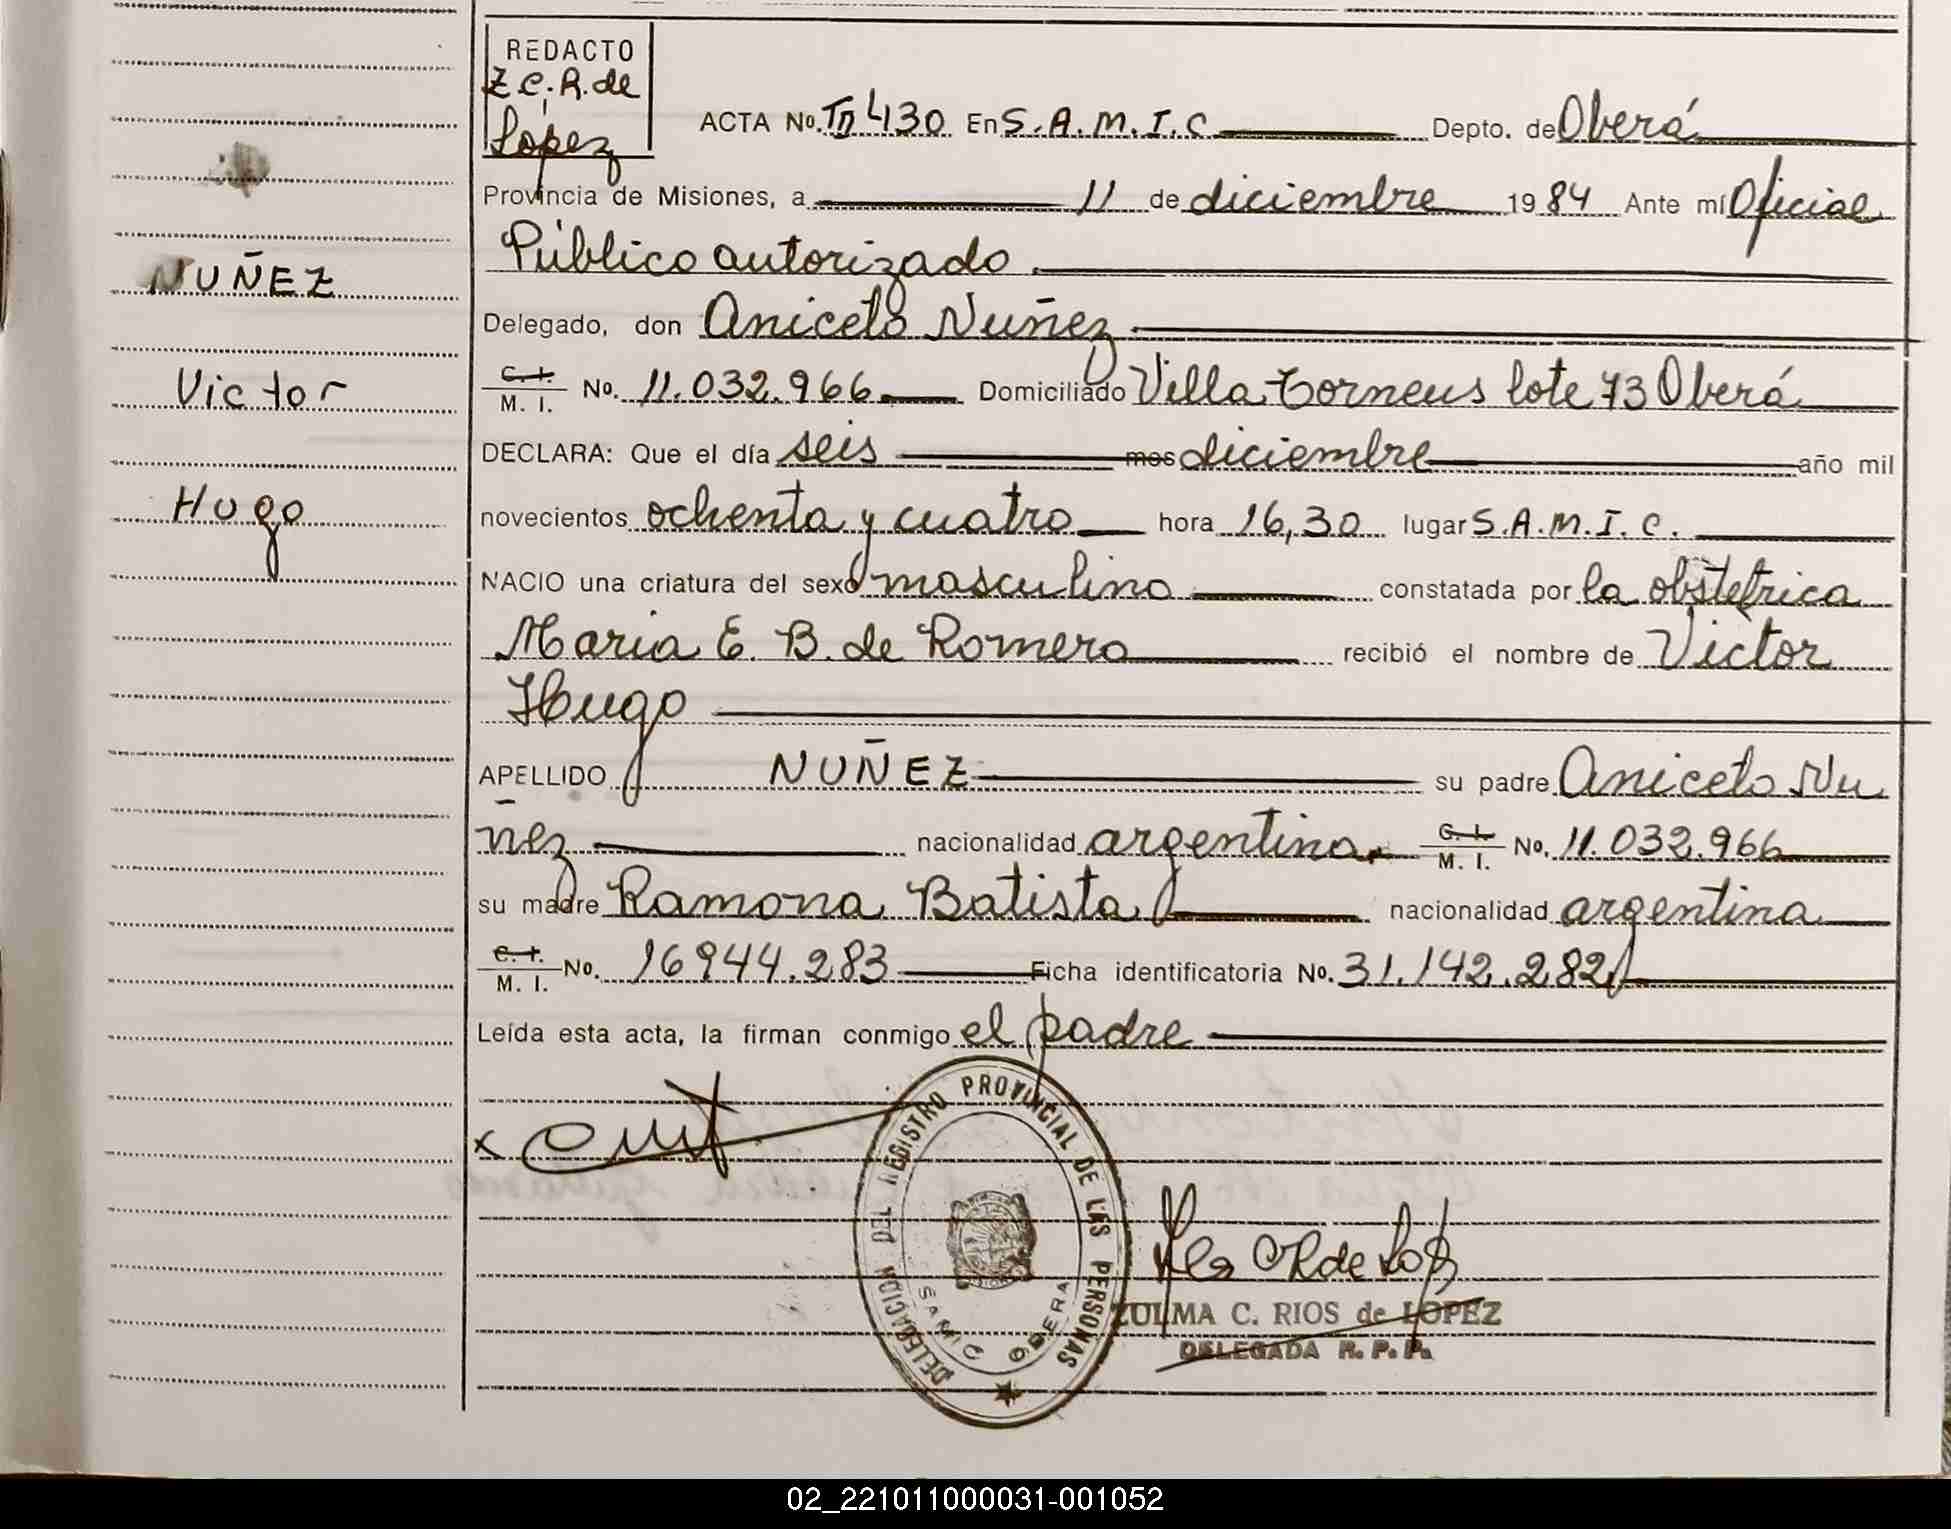 REDACTO
Z.C.R. de
Lopez
ACTA No. TD 430 En S.A.M.I.C. Depto. de Oberá
Provincia de Misiones, a 11 de diciembre 1984 Ante mí Oficial
Público autorizado
Delegado, don Aniceto Nuñez
C. I. / M. I. No. 11.032.966 Domiciliado Villa Torneus lote 73 Oberá
DECLARA: Que el día seis mes diciembre año mil
novecientos ochenta y cuatro hora 16,30 lugar S.A.M.I.C.
NACIO una criatura del sexo masculino constatada por la obstetrica
Maria E. B. de Romero recibió el nombre de Victor
Hugo
APELLIDO NUÑEZ su padre Aniceto Nu
ñez nacionalidad argentina C. I. / M. I. No. 11.032.966
su madre Ramona Batista nacionalidad argentina
C. I. / M. I. No. 16944.283 Ficha identificatoria No. 31.142.282
Leída esta acta, la firman conmigo el padre
NUÑEZ
Victor
Hugo
x
DELEGACION DEL REGISTRO PROVINCIAL DE LAS PERSONAS
SAMIC OBERA
ZULMA C. RIOS de LOPEZ
DELEGADA R. P. P.
02_221011000031-001052